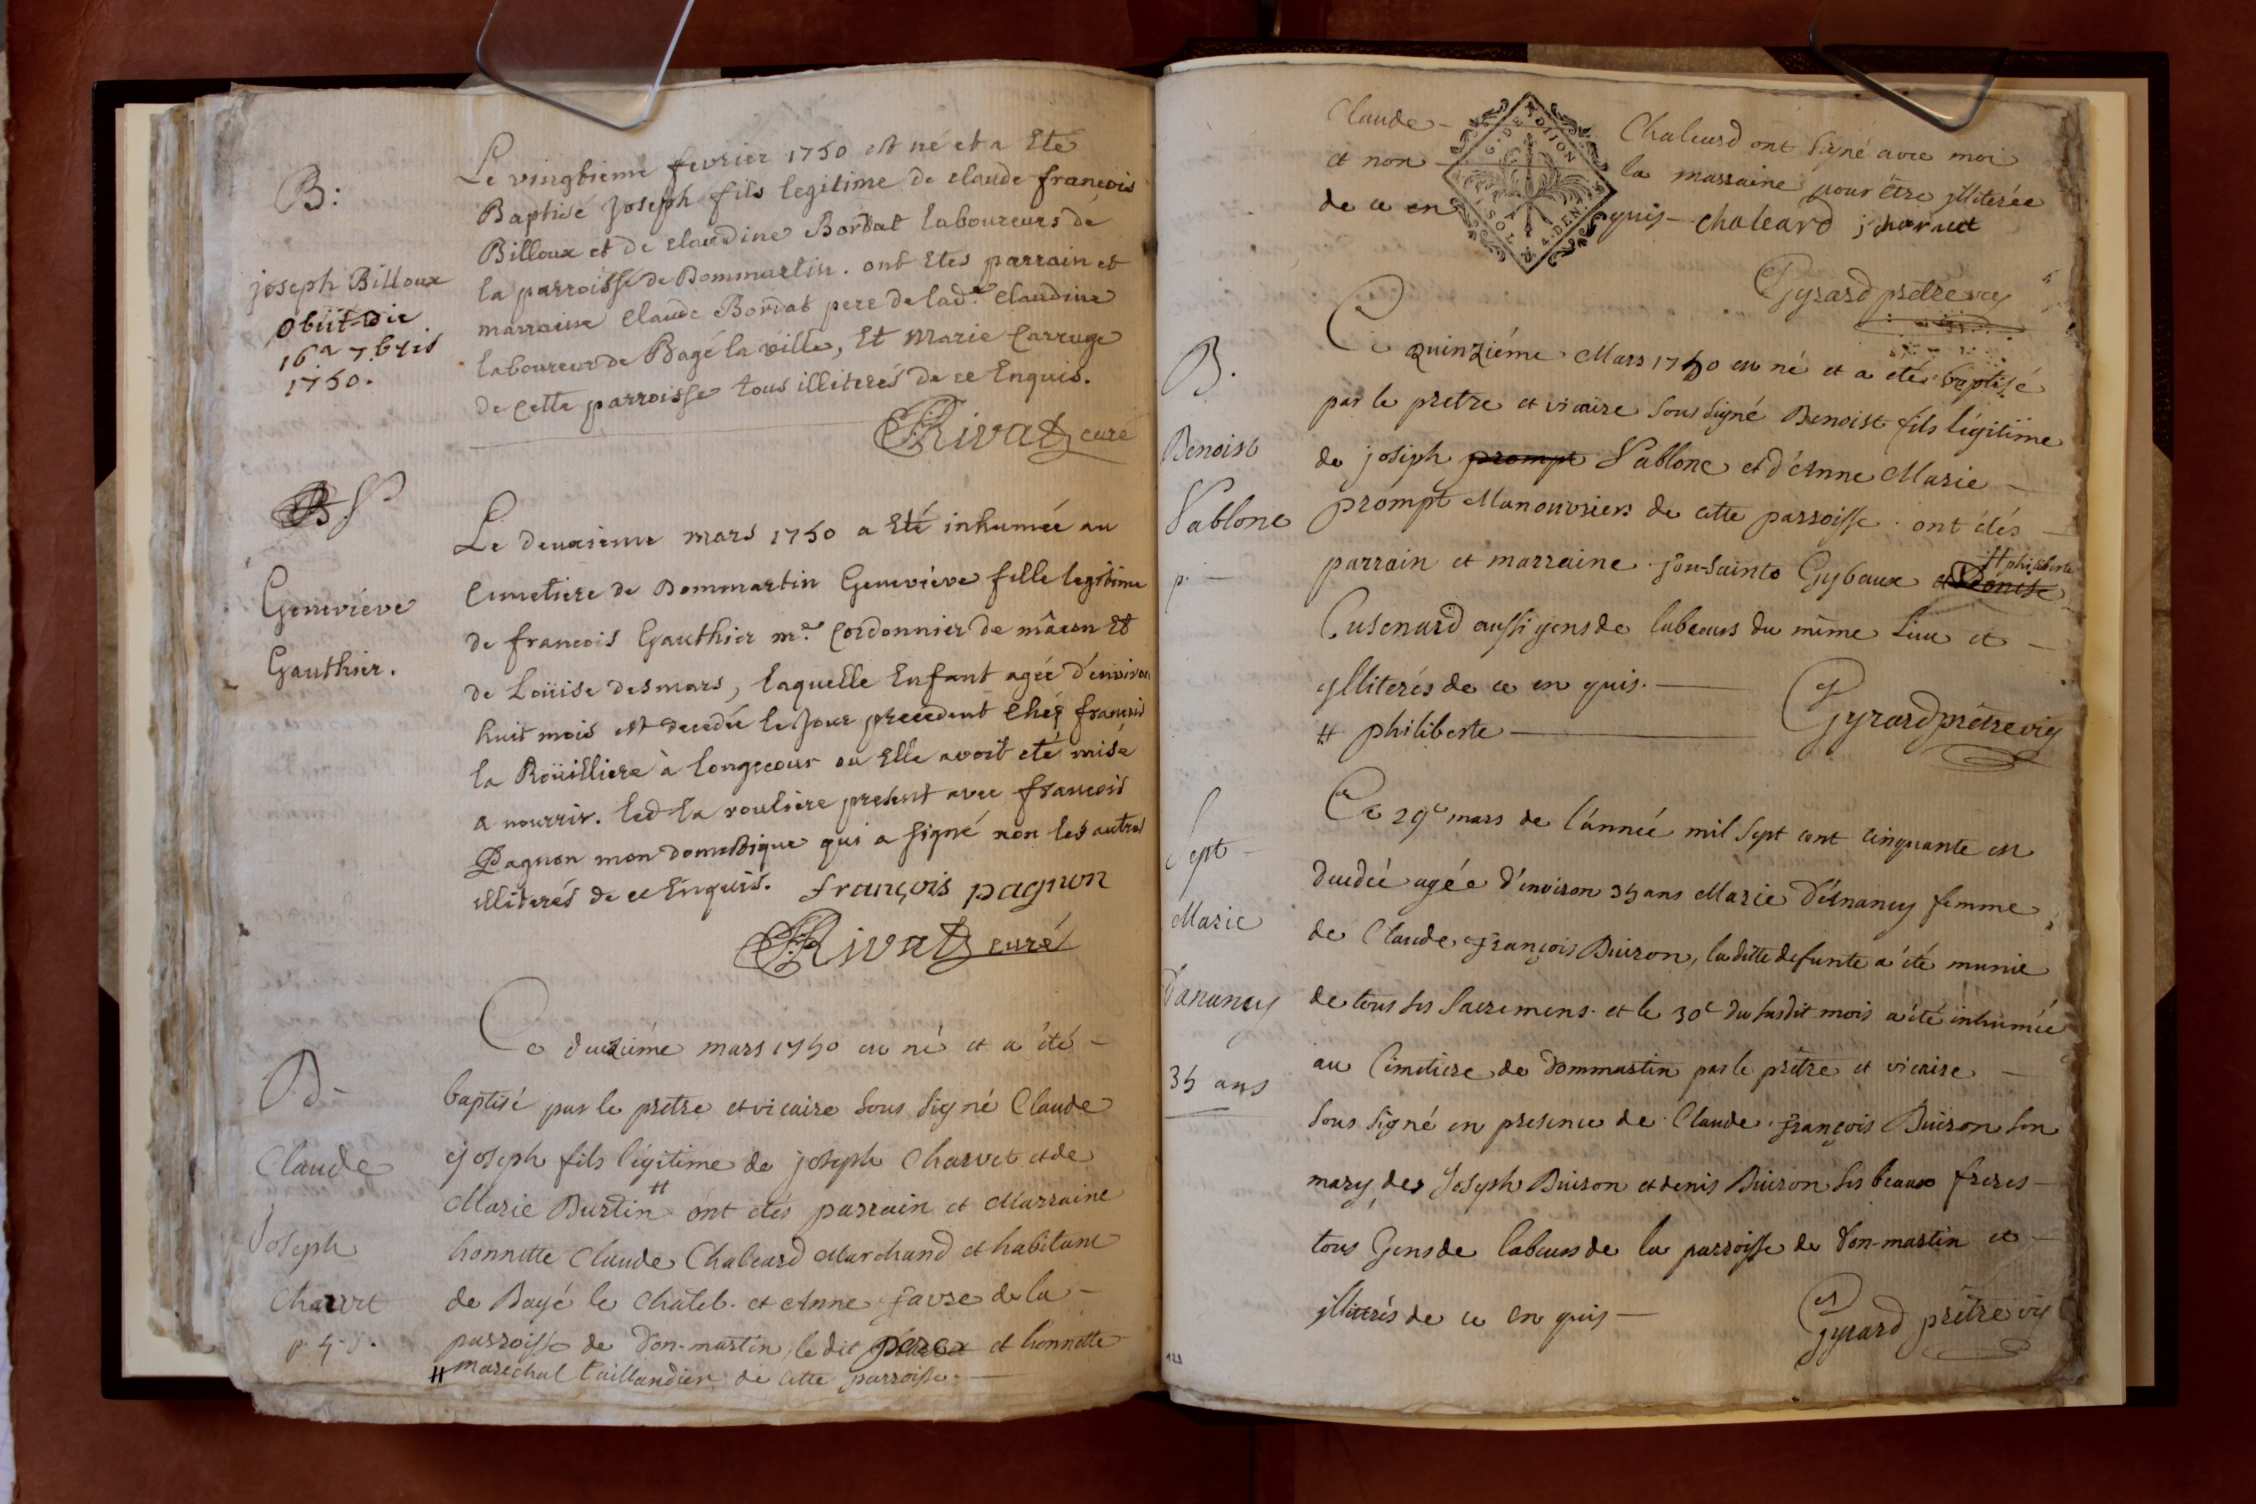 B:
joseph Billoux
obiit die
16a 7.bris
1750.
Le vingtieme fevrier 1750 est né et a Eté
Baptisé Joseph fils legitime de claude francois
Billoux et de claudine Bordat laboureurs de
la parroisse de Dommartin. ont Etes parrain et
marraine Claude Bordat pere de lad.e Claudine
laboureur de Bagé la ville, Et Marie Carruge
de cette parroisse tous illiterés de ce Enquis.
Rivat curé
S
Geneviéve
Gauthier.
Le deuxieme mars 1750 a Eté inhumée au
Cimetiere de Dommartin Geneviéve fille legitime
de francois Gauthier m.e Cordonnier de mâcon Et
de Loüise desmars, laquelle Enfant agée d'environ
huit mois est decedée le Jour precedent Chéz francois
la Roüilliere à longecour ou Elle avoit eté mise
a nourrir. led la rouliere present avec francois
Pagnon mon domestique qui a signé non les autres
illiterés de ce Enquis. françois pagnon
Rivat curé
B
Claude
Joseph
Charvet
Ce deuxiéme mars 1750 est né et a été
baptisé par le pretre et vicaire sous signé Claude
joseph fils légitime de joseph Charvet et de
Marie Burtin # ont étés parrain et Marraine
honnette Claude Chaleard Marchand et habitant
de Bagé le Chatel. et Anne favre de la
parroisse de Don-martin, le dit et honnette
# maréchal taillandier de cette parroisse.
Claude Chaleard ont signé avec moi
et non la marraine pour être illiterée
de ce en quis chaleard j charvet
G. DE DIJON
1 SOL 4 DEN.
Gyrard pretre vic
B.
Benoist
Sablone
p.
Ce quinziéme Mars 1750 est né et a été baptisé
par le pretre et vicaire sous signé Benoist fils légitime
de joseph prompt Sablone et d'Anne Marie
prompt Manouvriers de cette parroisse. ont étés
parrain et marraine Tou-Saints Gybaux et Denise # philiberte
Cusenard aussi gens de labeurs du même Lieu et
illiterés de ce en quis.
# philiberte
Gyrard prêtre vic
Sept
Marie
D'anancy
35 ans
Ce 29e mars de l'année mil sept cent cinquante est
decedée agée d'environ 35 ans Marie D'Enancy femme
de Claude françois Buiron, la ditte defunte a été munie
de tous ses sacremens. et le 30e du susdit mois a été inhumée
au Cimetiere de Dommartin par le prêtre et vicaire
sous signé en presence de Claude françois Buiron son
mary, des Joseph Buiron et denis Buiron ses beaux freres
tous Gens de labeurs de la parroisse de Don-martin et
illiterés de ce en quis
Gyrard prêtre vic